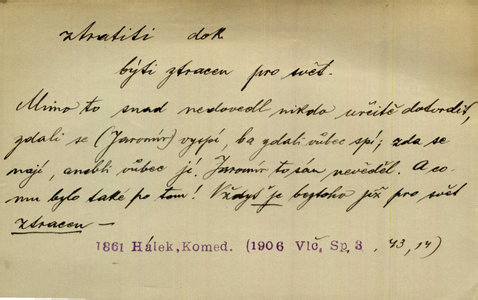 ztratiti dok.
býti ztracen pro svět.
Mimo to snad nedovedl nikdo určitě dotvrdit,
zdali se (Jaromír) vyspí, ba zdali vůbec spí; zda se
nají, anobrž vůbec jí! Jaromír to sám nevěděl. A co
mu bylo také po tom! Vždyť je beztoho již pro svět
ztracen —
1861 Hálek, Komed. (1906 Vlč, Sp, 3, 43, 14)